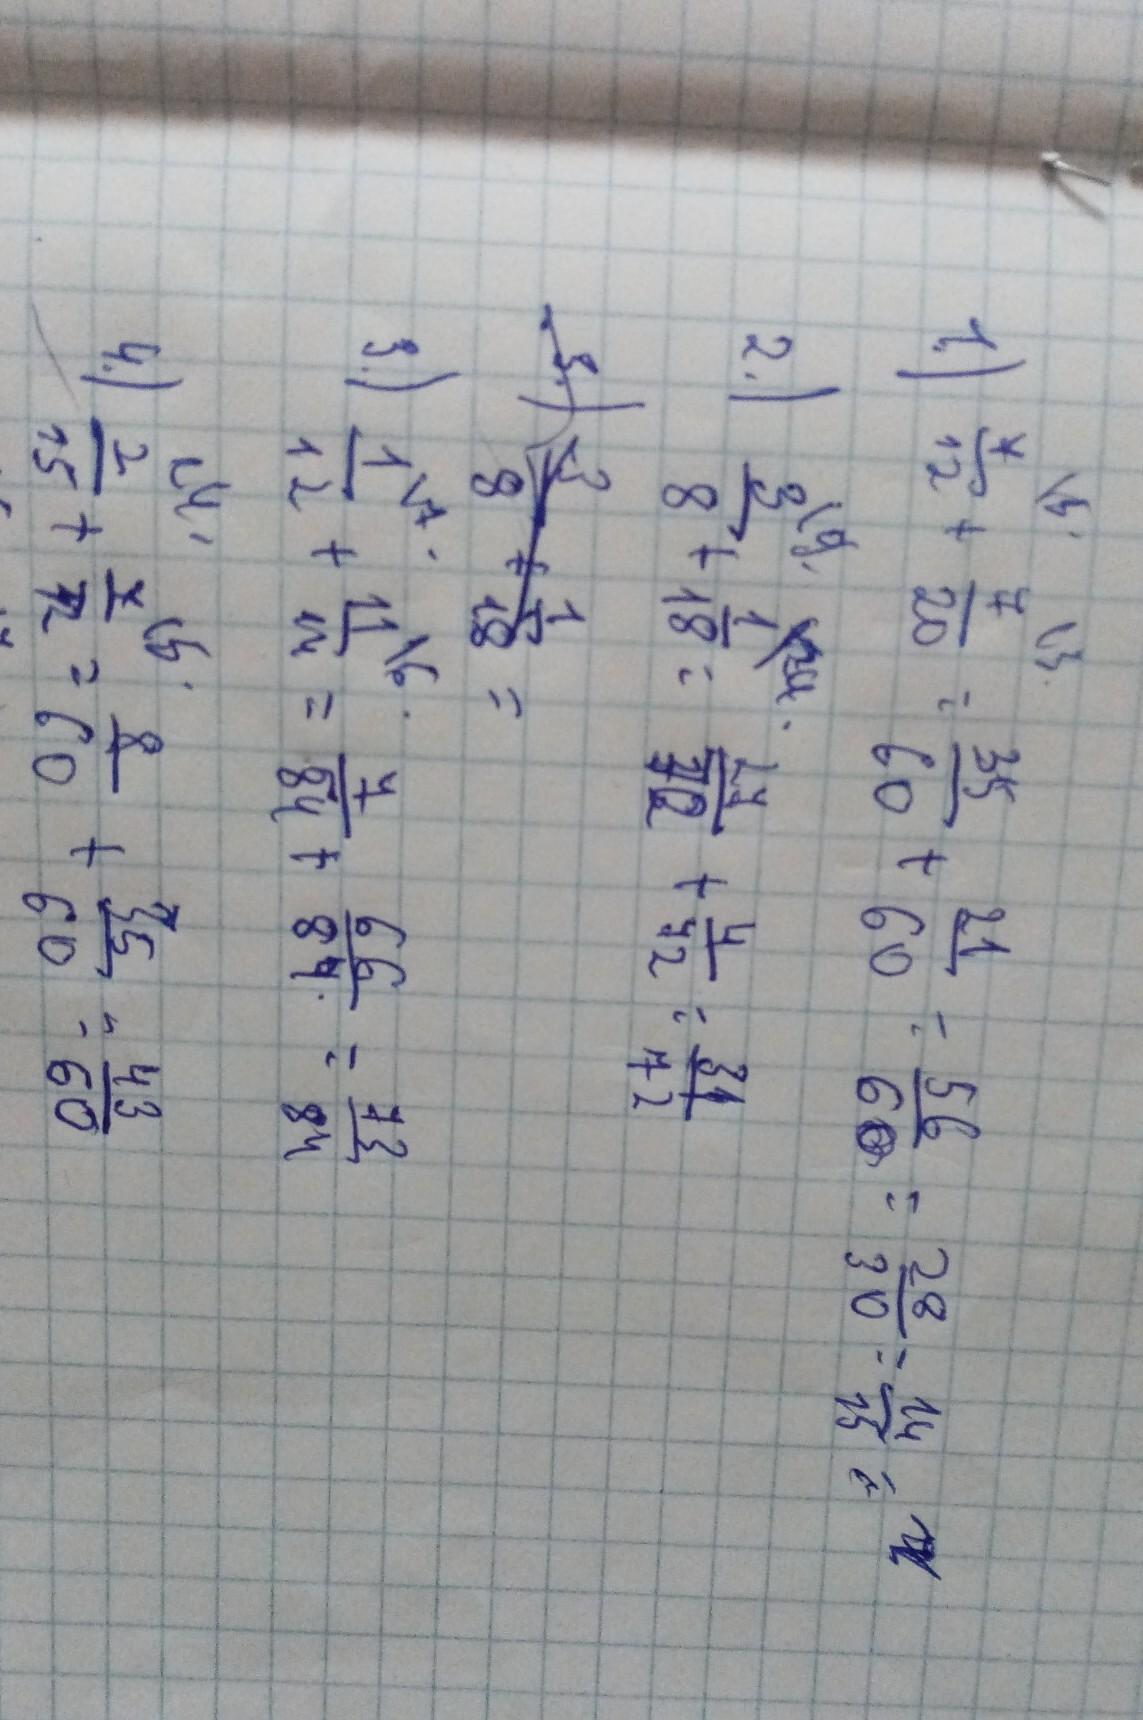 1.) 7/12 \5. + 7/20 \3. = 35/60 + 21/60 = 56/60 = 28/30 = 14/15 =
2.) 3/8 \9. + 1/18 = 27/72 + 4/72 = 31/72
3.) 3/8 + 1/18 =
3.) 1/12 \7. + 11/14 \6. = 7/84 + 66/84 = 73/84
4.) 2/15 \4. + 7/12 \5. = 8/60 + 35/60 = 43/60